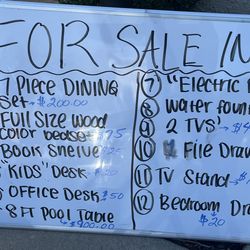 FOR SALE IN
7 PIECE DINING
Set → $200.00
FULL SIZE WOOD
COLOR bedset $75
BOOK SHELVE
"KIDS" DESK → $20
OFFICE DESK $50
8 FT POOL TABLE
→ $900.00
⑦ "Electric
⑧ Water foun
2 TVS'
⑩ File Draw
⑪ TV Stand → $
⑫ Bedroom Dra
→ $20